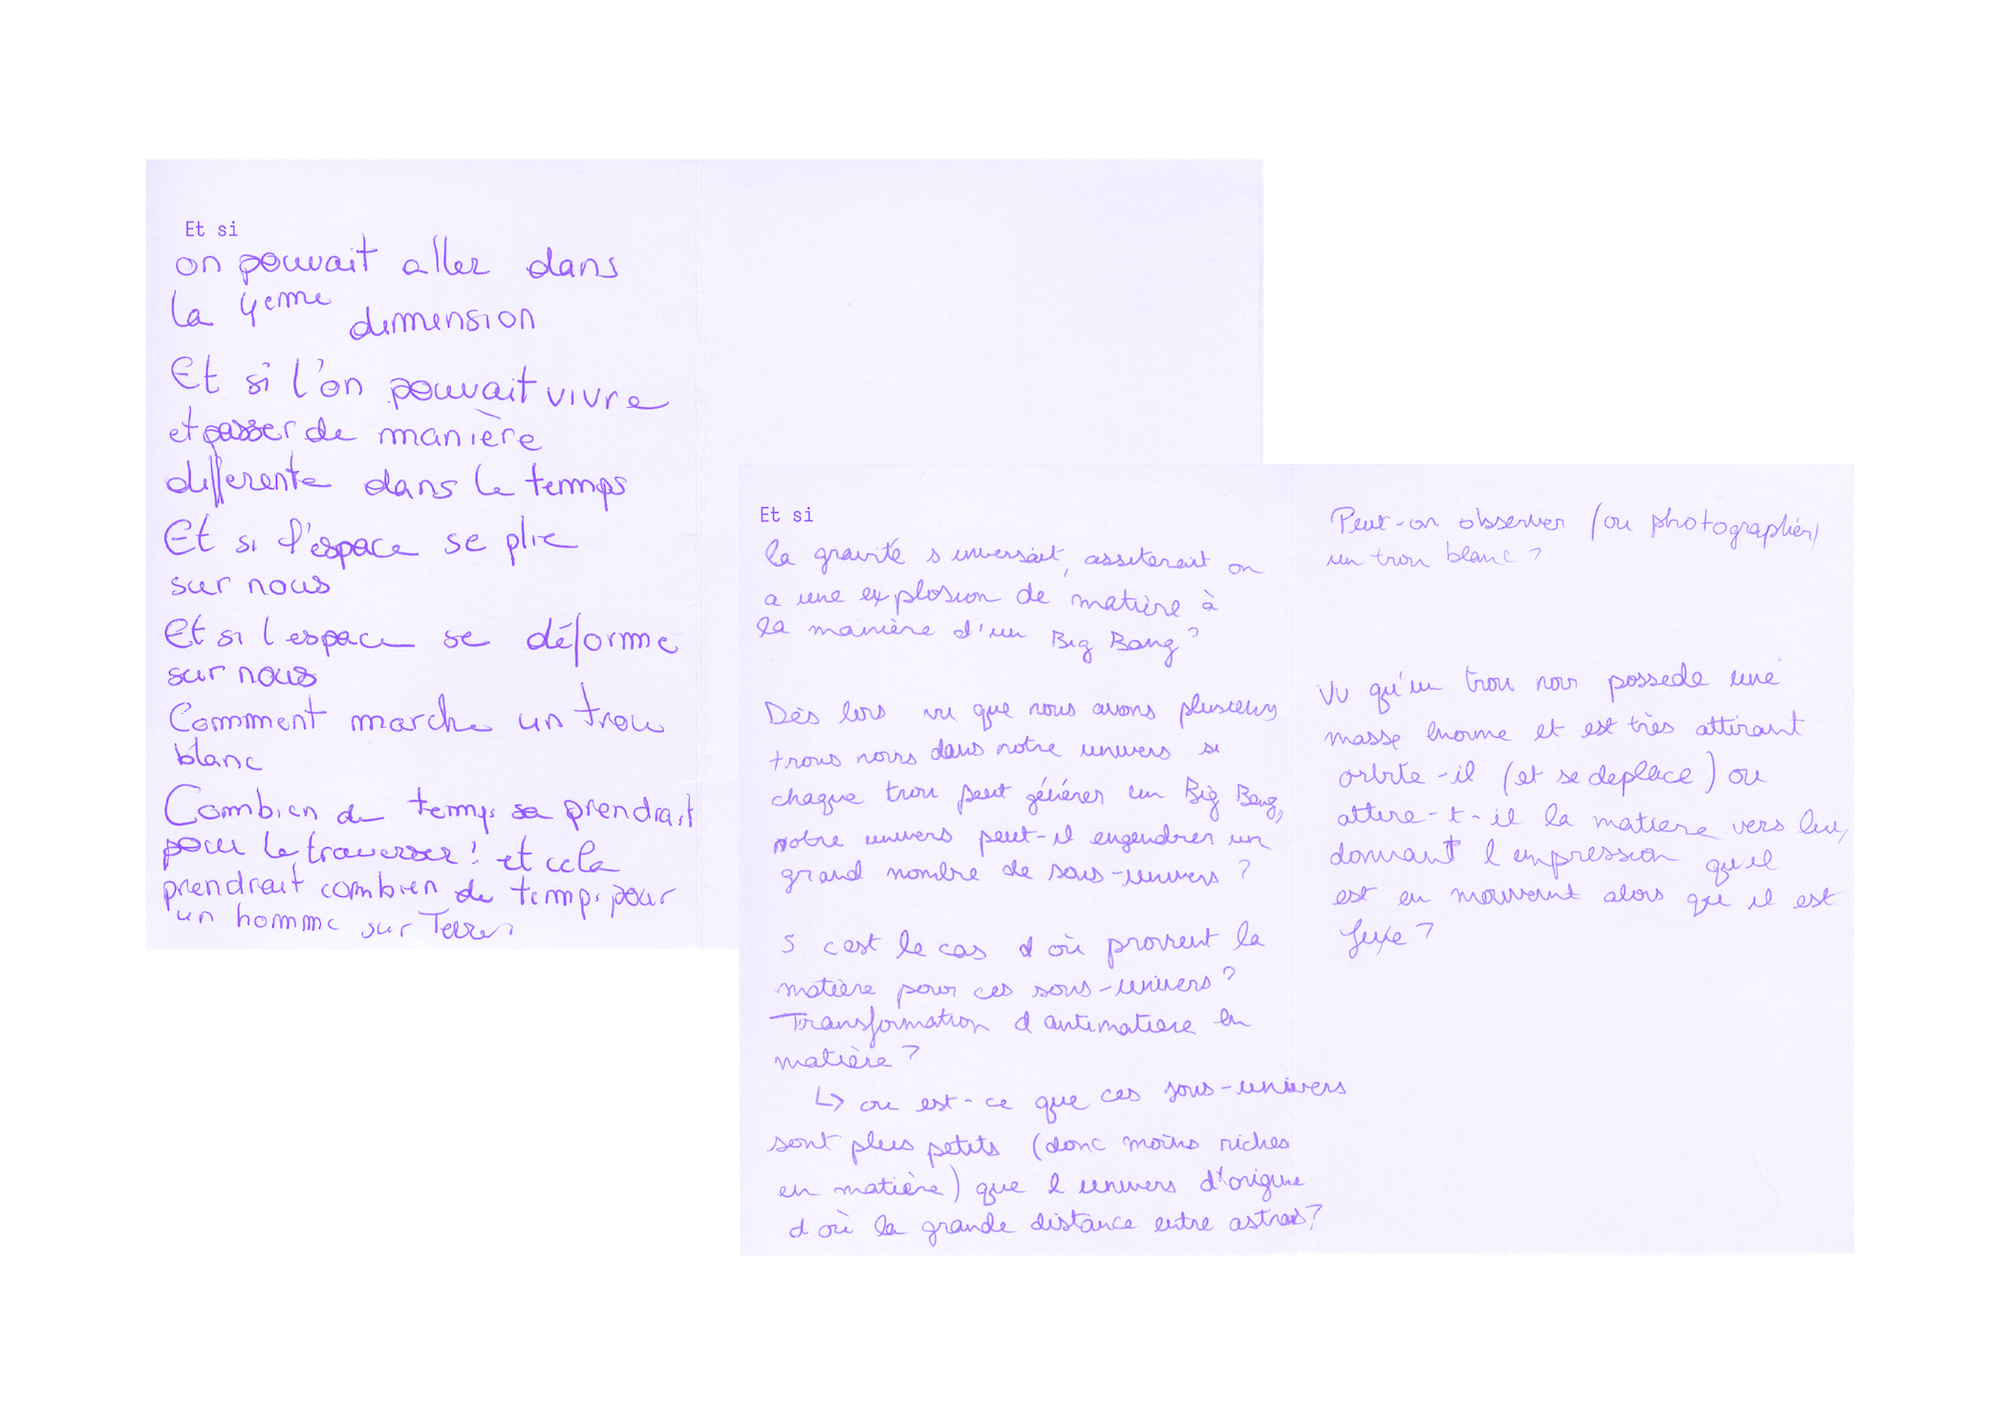 Et si
on pouvait aller dans
la 4eme dimension
Et si l'on pouvait vivre
et passer de manière
differente dans le temps
Et si l'espace se plie
sur nous
Et si l espace se déforme
sur nous
Comment marche un trou
blanc
Combien de temps prendrait
pour le traverser ! et cela
prendrait combien de temps pour
un homme sur Terre
Et si
la gravité s inversait, assiterait on
a une explosion de matière à
la manière d'un Big Bang ?
Dès lors vu que nous avons plusieurs
trous noirs dans notre univers si
chaque trou peut générer un Big Bang,
notre univers peut-il engendrer un
grand nombre de sous-univers ?
S c'est le cas d où provient la
matière pour ces sous-univers ?
Transformation d antimatiere en
matière ?
↳ ou est-ce que ces sous-univers
sont plus petits (donc moins riches
en matière) que l univers d'origine
d où la grande distance entre astres ?
Peut-on observer (ou photographier)
un trou blanc ?
Vu qu'un trou noir possede une
masse enorme et est très attirant
orbite-il (et se deplace) ou
attire-t-il la matiere vers lui,
donnant l impression qu il
est en mouvement alors que il est
fixe ?